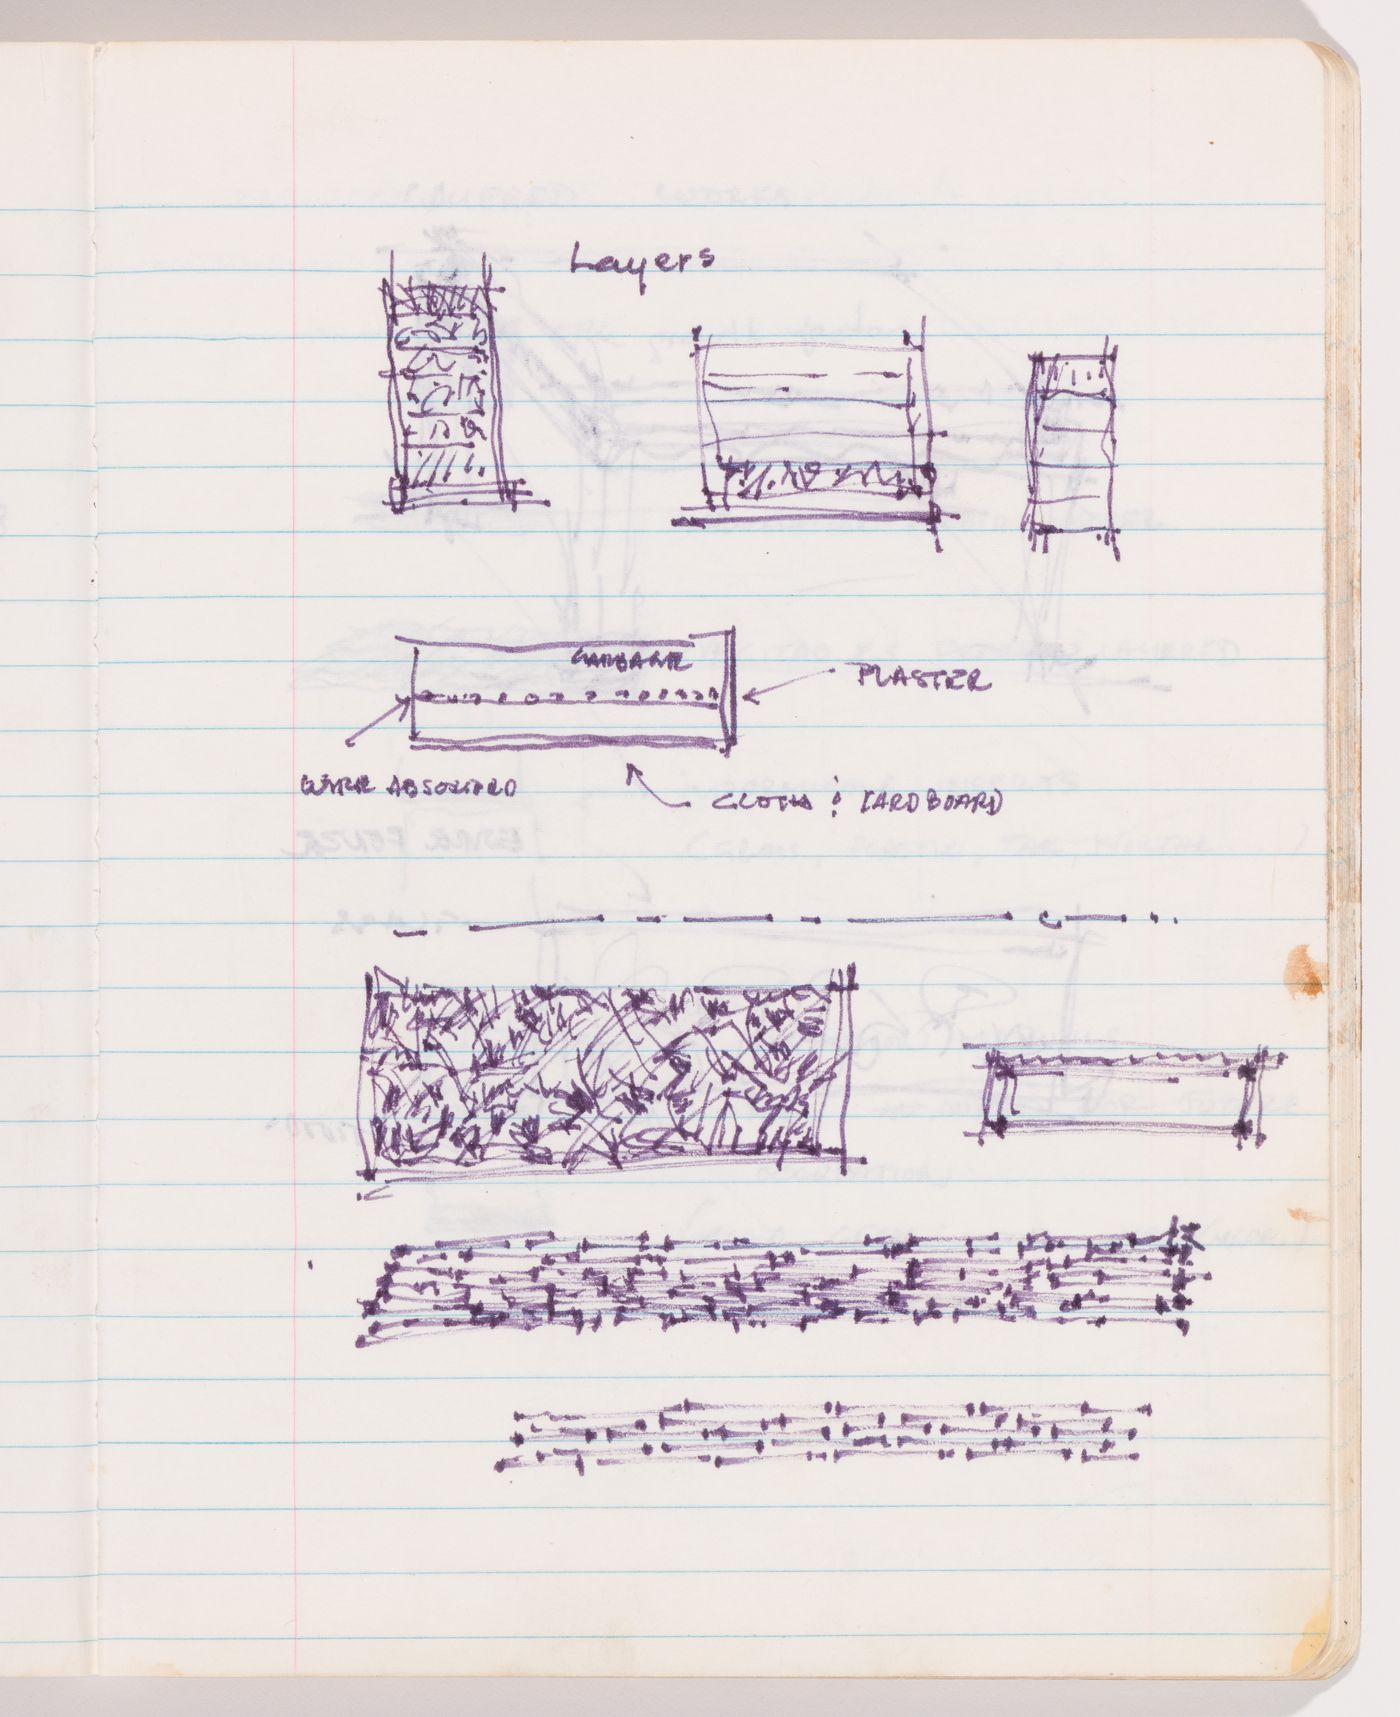 Layers
GARBAGE
PLASTER
WIRE ABSORBED
CLOTH & CARDBOARD